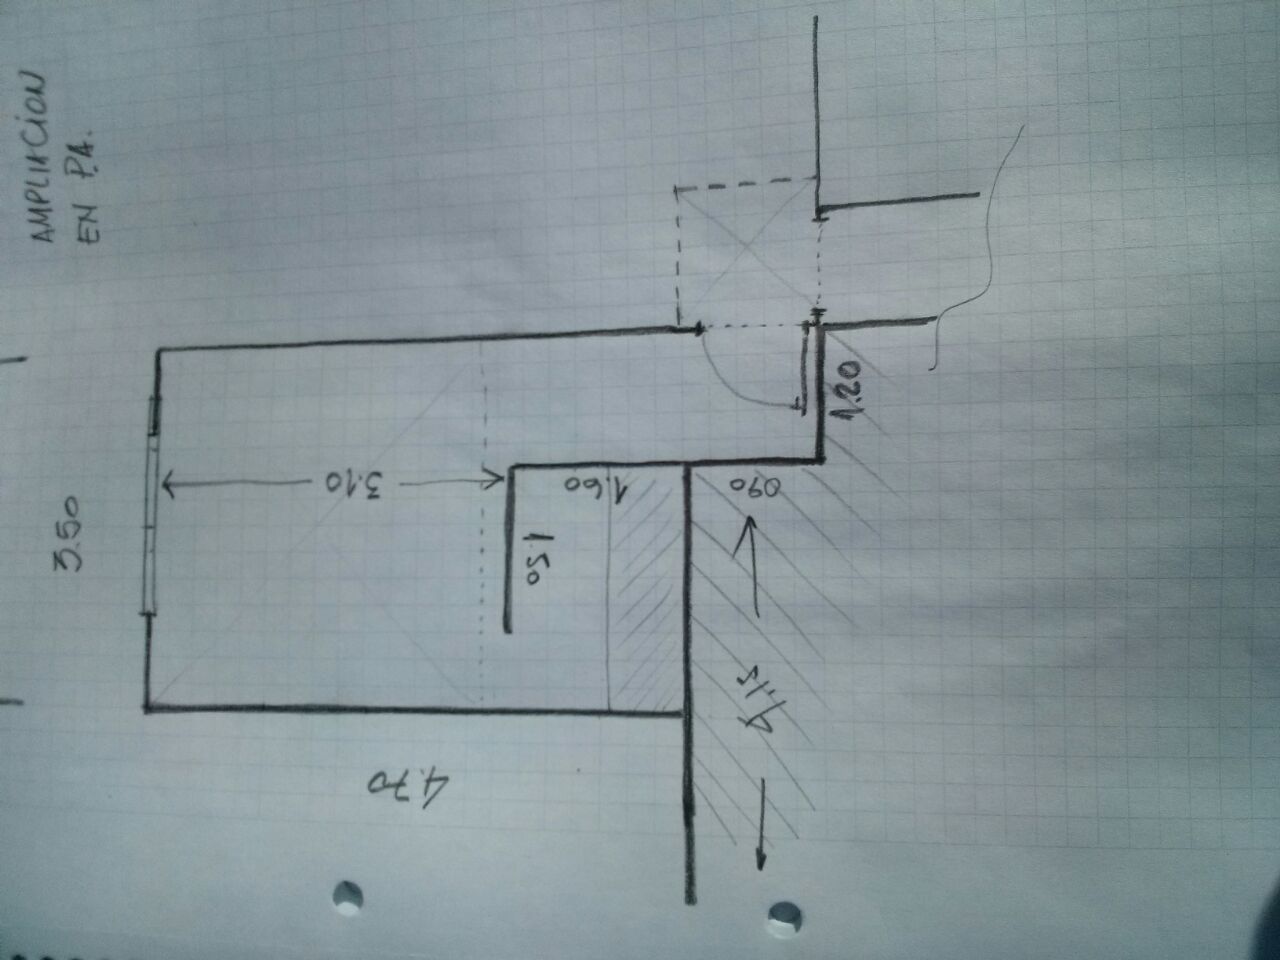 AMPLIACION
EN P.A.
3.50
3.10
1.60
1.50
090
1.20
4.15
4.70